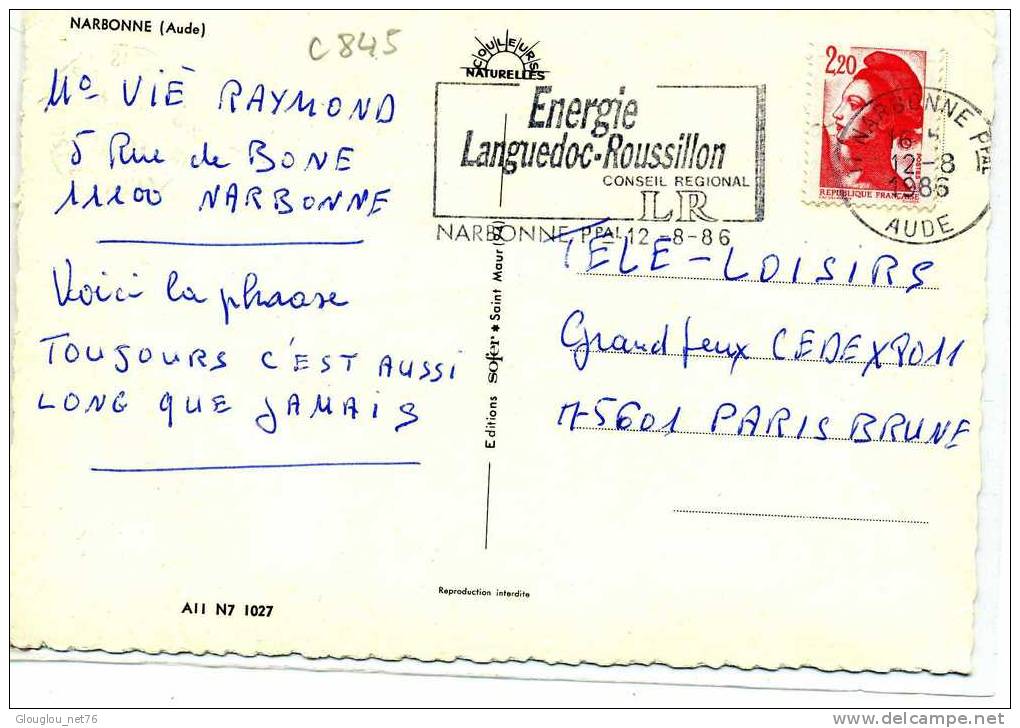 NARBONNE (Aude)
C845
Mº VIÉ RAYMOND
5 Rue de BONE
11100 NARBONNE
Voici la phrase
TOUJOURS C'EST AUSSI
LONG QUE JAMAIS
COULEURS
NATURELLES
Energie
Languedoc-Roussillon
CONSEIL REGIONAL
LR
NARBONNE PPAL 12-8-86
2,20
REPUBLIQUE FRANÇAISE
NARBONNE PPAL
12-8
1986
AUDE
TÉLÉ-LOISIRS
Grand Jeux CEDEX 9011
75601 PARIS BRUNE
Editions sofer * Saint Maur (94)
Reproduction interdite
A11 N7 1027
Glouglou_net76
delcampe.net